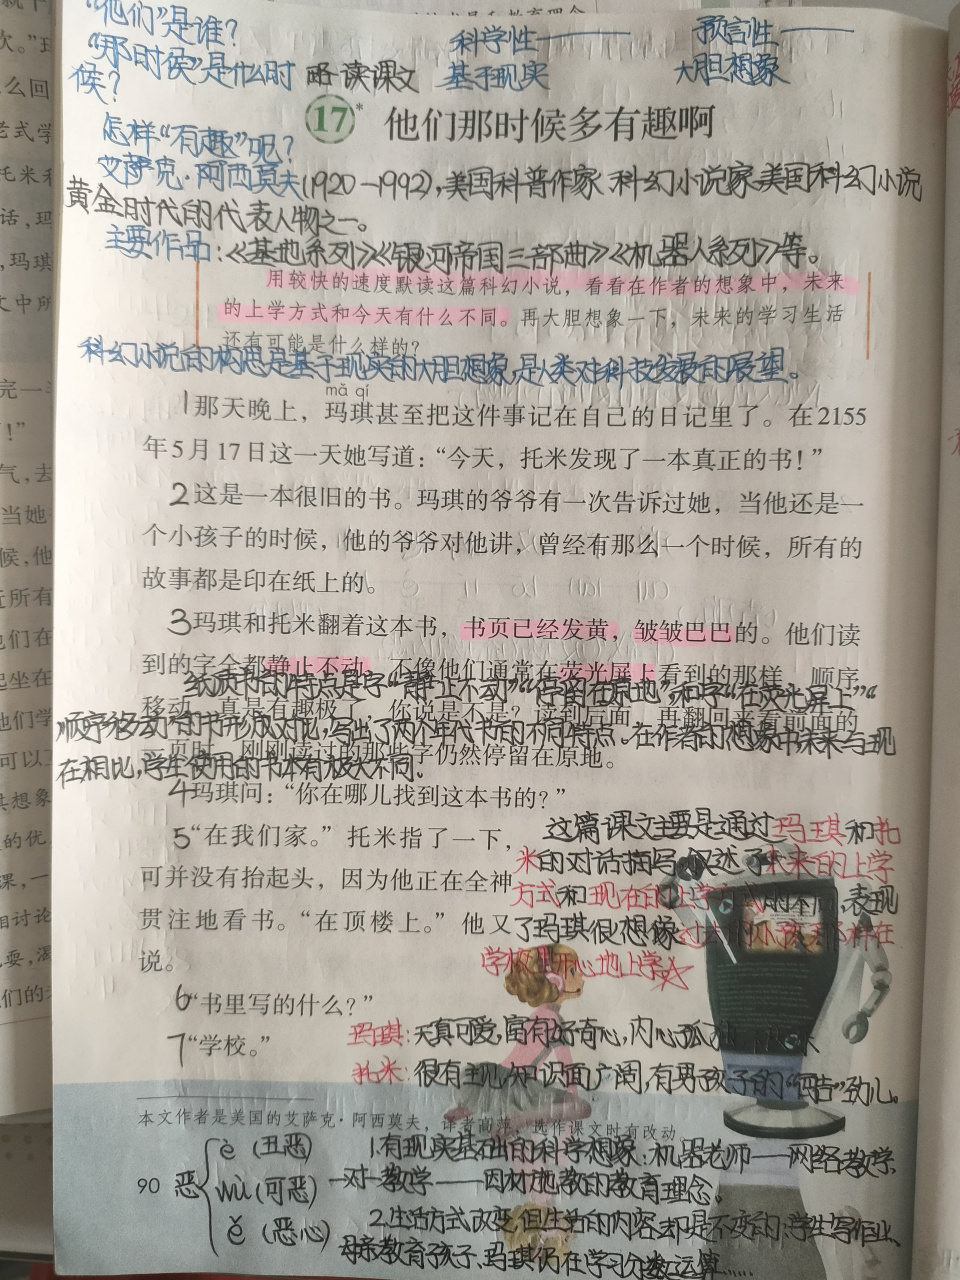 "他们"是谁?
科学性
预言性
"那时候"是什么时
略读课文
基于现实
大胆想象
候?
17* 他们那时候多有趣啊
怎样"有趣"呢?
艾萨克·阿西莫夫(1920-1992),美国科普作家、科幻小说家、美国科幻小说
黄金时代的代表人物之一。
主要作品:《基地系列》《银河帝国三部曲》《机器人系列》等。
用较快的速度默读这篇科幻小说,看看在作者的想象中,未来
的上学方式和今天有什么不同。再大胆想象一下,未来的学习生活
还有可能是什么样的?
科幻小说的构思是基于现实的大胆想象,是人类对科技发展的展望。
mǎ qí
1那天晚上,玛琪甚至把这件事记在自己的日记里了。在2155
年5月17日这一天她写道:“今天,托米发现了一本真正的书!”
2这是一本很旧的书。玛琪的爷爷有一次告诉过她,当他还是一
个小孩子的时候,他的爷爷对他讲,曾经有那么一个时候,所有的
故事都是印在纸上的。
3玛琪和托米翻着这本书,书页已经发黄,皱皱巴巴的。他们读
到的字全都静止不动,不像他们通常在荧光屏上看到的那样,顺序
纸质书的特点是字“静止不动”“停留在原地”和字“在荧光屏上”“
移动,真是有趣极了,你说是不是?读到后面,再翻回来看前面的
顺序移动”的书形成对比,写出了两个年代书的不同特点。在作者的想象中未来与现
一页时,刚刚读过的那些字仍然停留在原地。
在相比,学生使用的书本有极大不同。
4玛琪问:“你在哪儿找到这本书的?”
5“在我们家。”托米指了一下,
可并没有抬起头,因为他正在全神
贯注地看书。“在顶楼上。”他又
说。
这篇课文主要是通过玛琪和托
米的对话描写,叙述了未来的上学
方式和现在的上学方式的不同,表现
了玛琪很想像过去的小孩那样在
学校里开心地上学☆
6“书里写的什么?”
7“学校。”
玛琪:天真可爱,富有好奇心,内心孤独
托米:很有主见,知识面广阔,有男孩子的
本文作者是美国的艾萨克·阿西莫夫,译者高萍,选作课文时有改动。
恶
è (丑恶)
wù (可恶)
ě (恶心)
1.有现实基础的科学想象:机器老师——网络教学、
一对一教学——因材施教的教育理念。
2.生活方式改变,但生活的内容却是不变的:学生写作业、
母亲教育孩子、玛琪仍在学习分数运算……
90